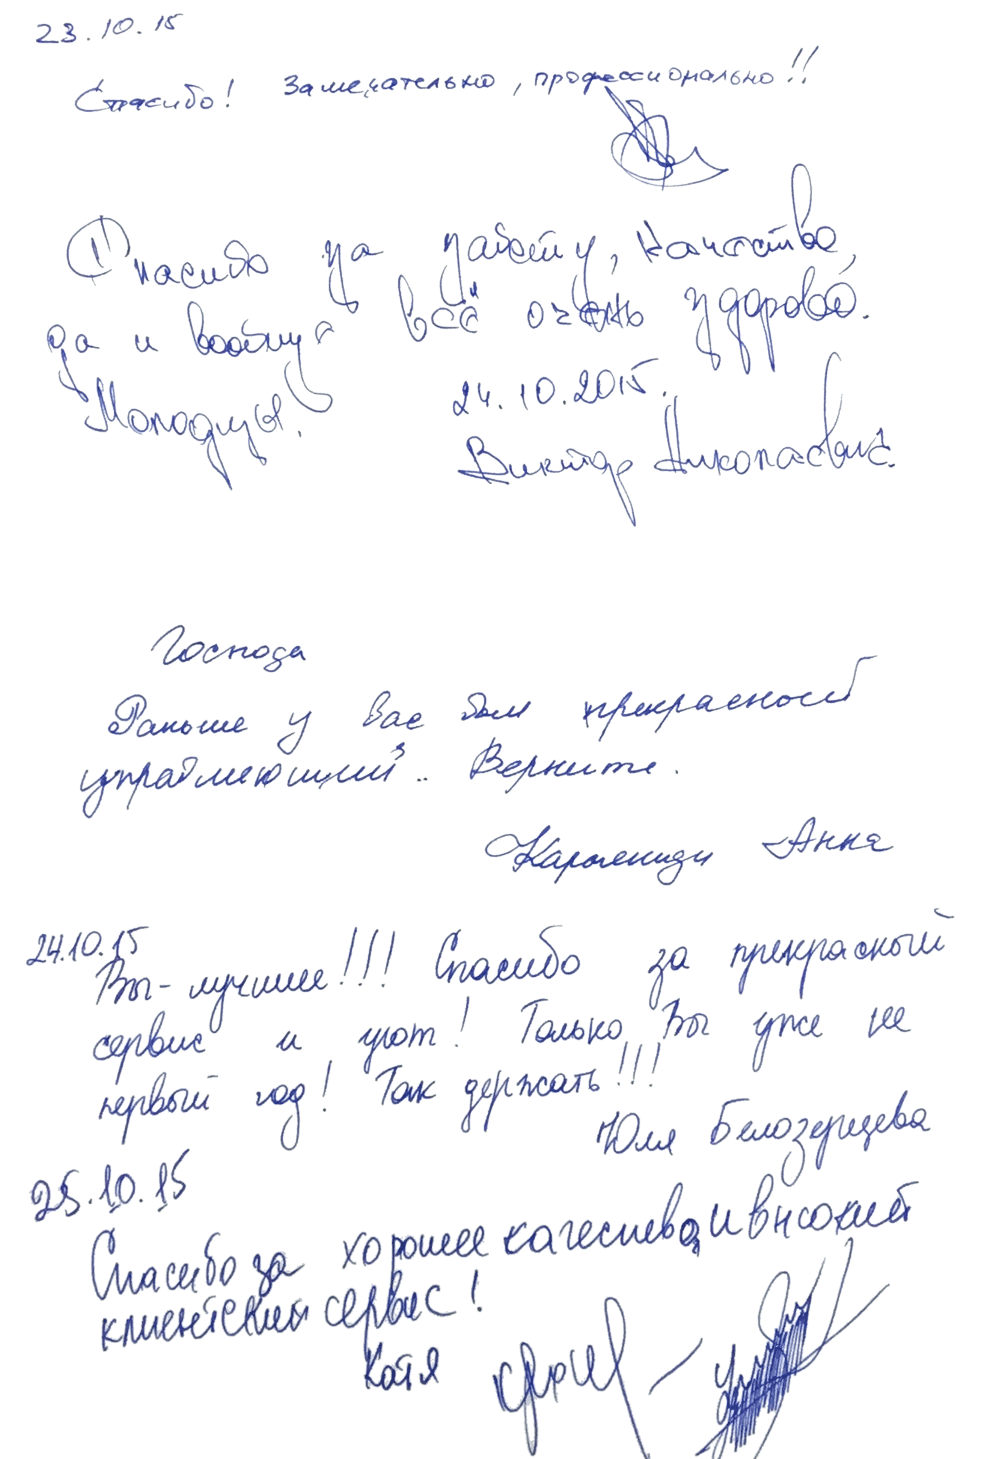 23.10.15
Спасибо! Замечательно, профессионально!!
Спасибо за заботу, качество,
да и вообще всё очень здорово.
Молодцы! 24.10.2015.
Виктор Николаевич.
Господа
Раньше у вас был прекрасный
управляющий.. Верните.
Анна
24.10.15
Вы - лучшие!!! Спасибо за прекрасный
сервис и уют! Только Вы уже не
первый год! Так держать!!!
Юля Белозерцева
25.10.15
Спасибо за хорошее качество, и высокий
клиентский сервис!
Катя